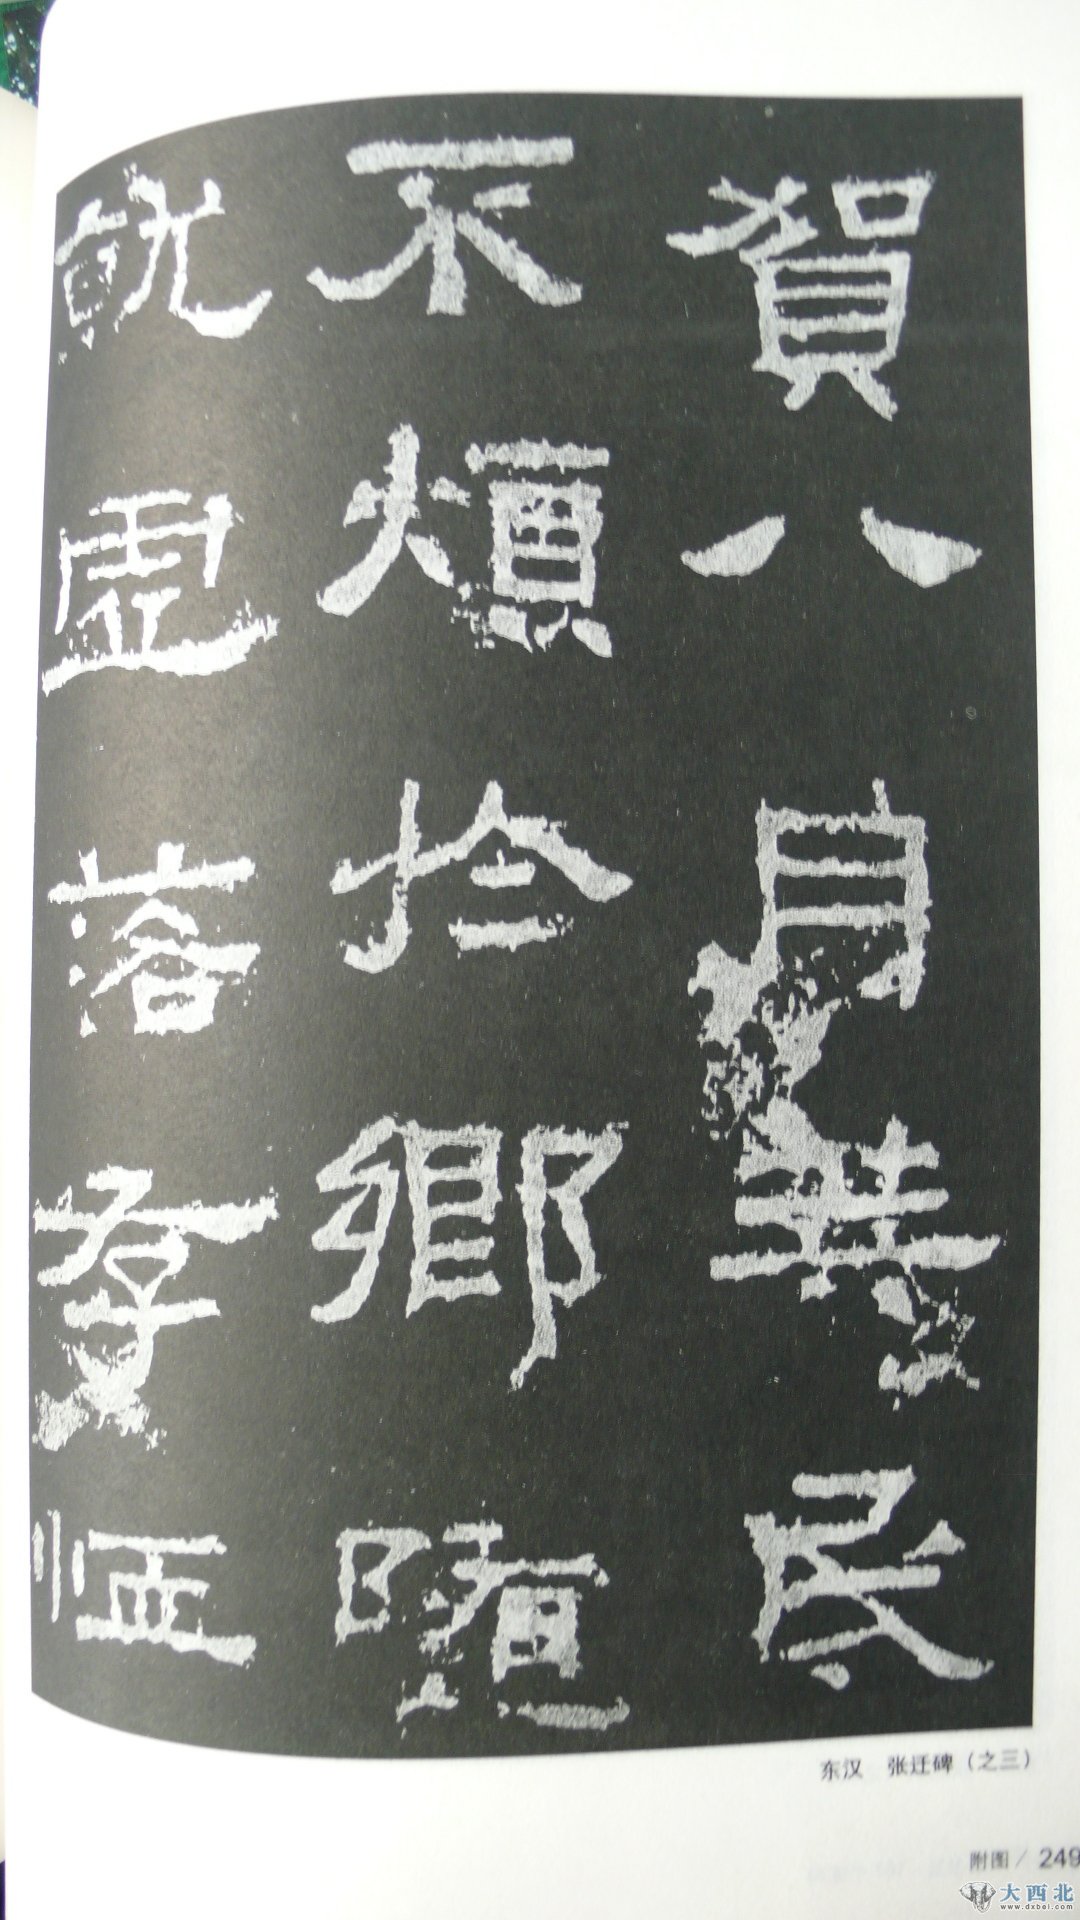 賀八月筭民
不煩於鄉隨
就虛落存恤
东汉 张迁碑（之三）
附图/249
大西北
www.dxbei.com